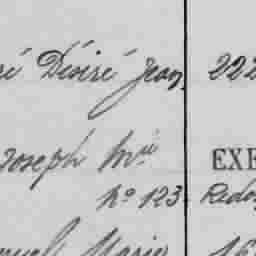 ré Désiré Jean 222
Joseph Mie EXE
No 123 Redo
nuel Marie 16